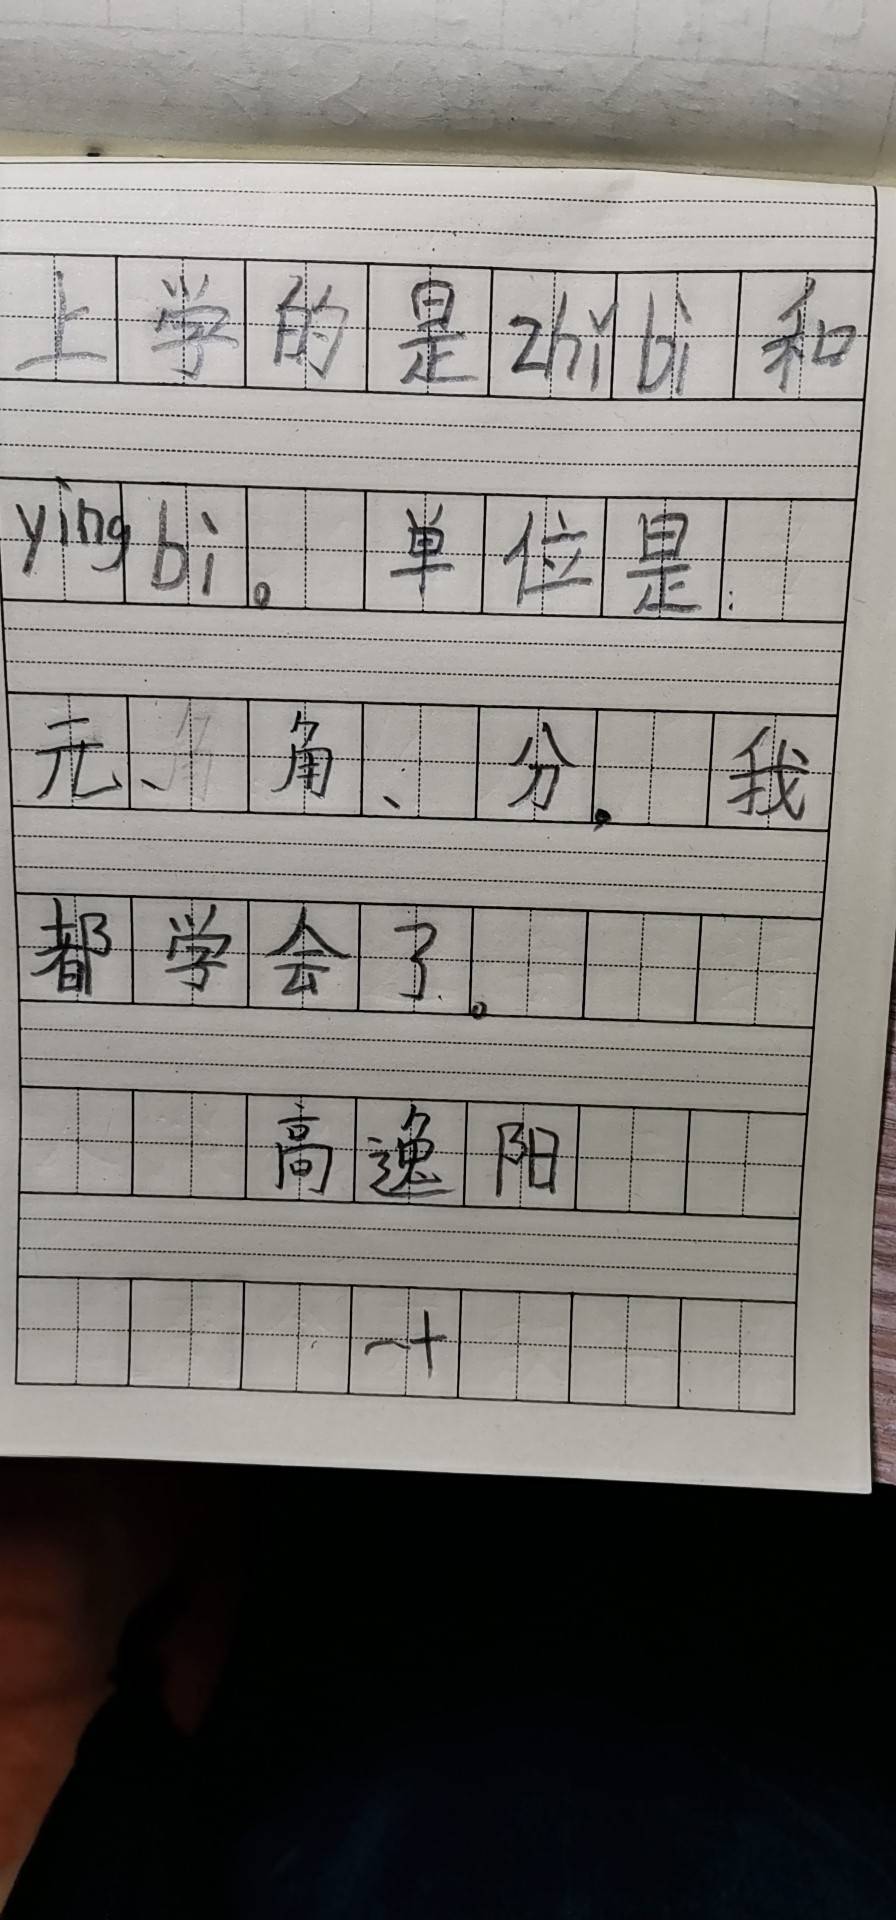 上学的是zhǐbì和
yìngbì。单位是：
元、角、分。我
都学会了。
高逸阳
一十